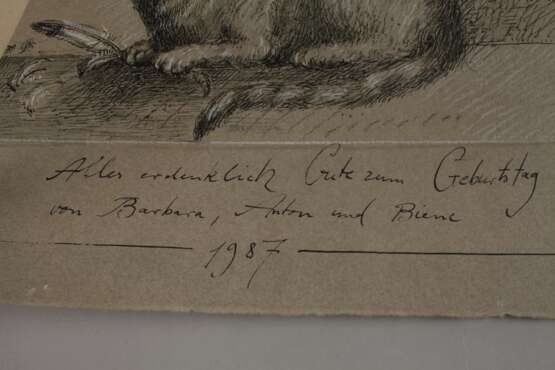 Alles erdenklich Gute zum Geburtstag
von Barbara, Anton und Biene
1987